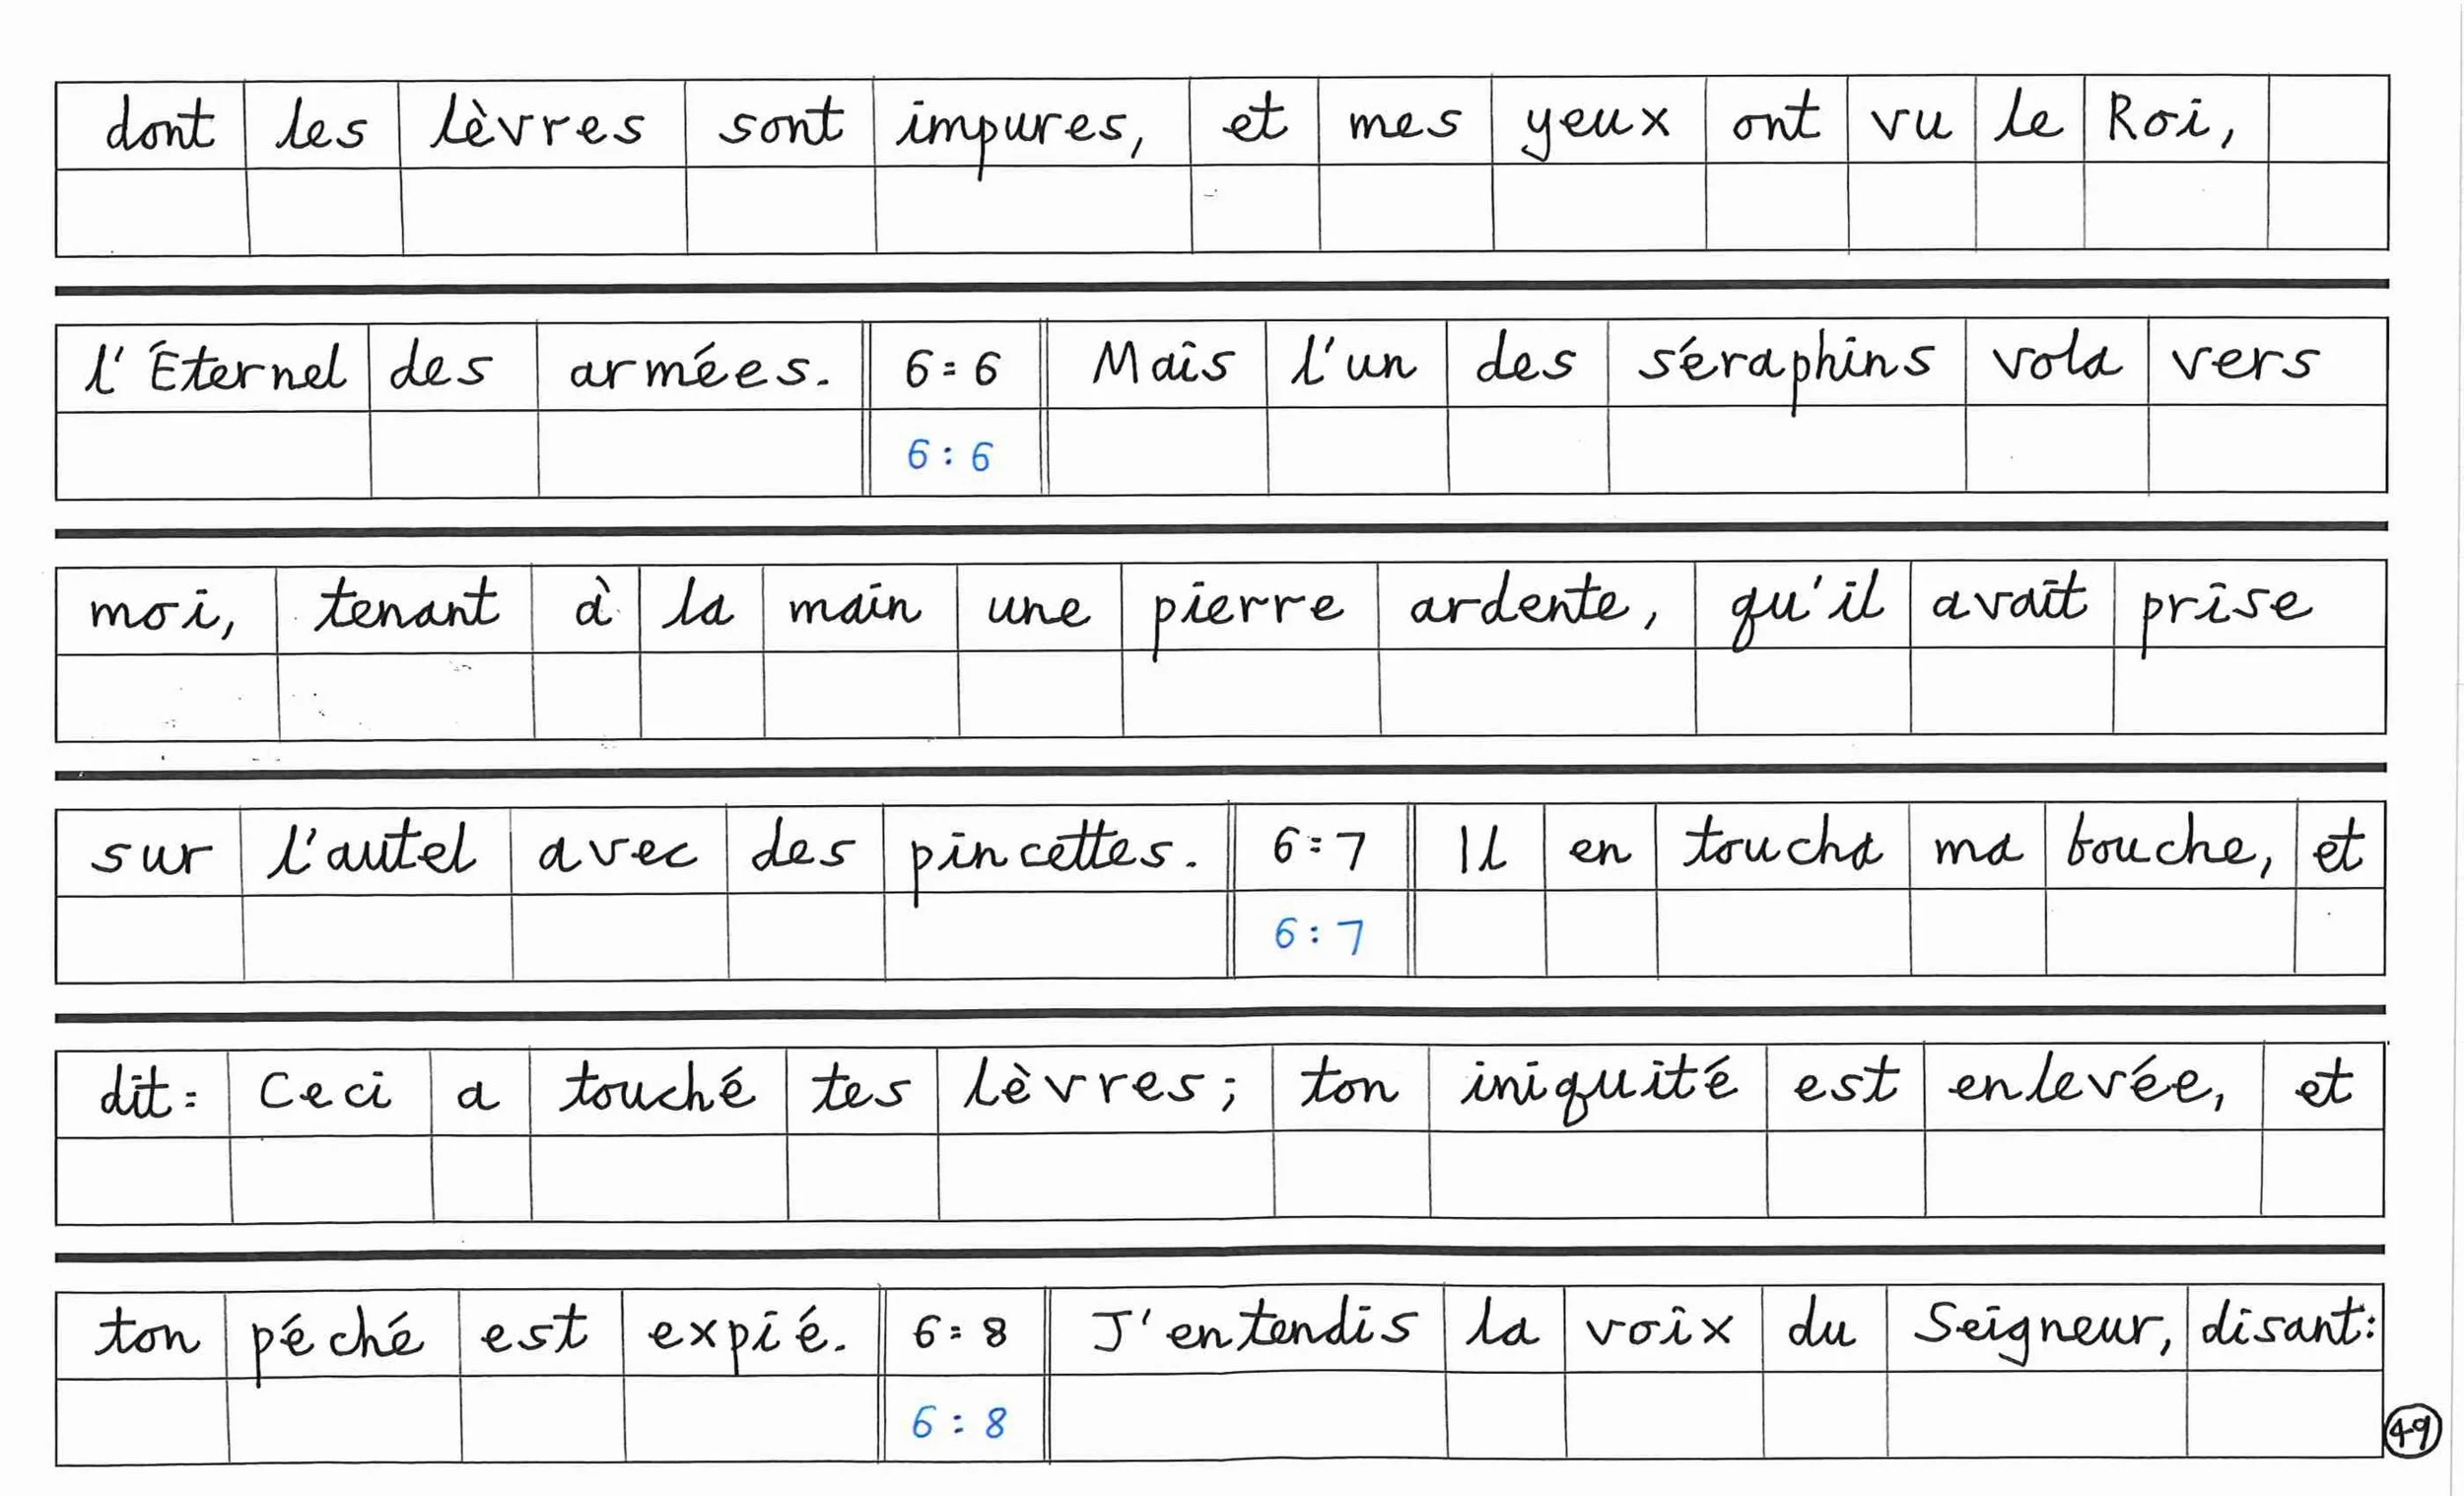 dont les lèvres sont impures, et mes yeux ont vu le Roi,
l'Éternel des armées. 6:6 Mais l'un des séraphins vola vers
6:6
moi, tenant à la main une pierre ardente, qu'il avait prise
sur l'autel avec des pincettes. 6:7 Il en toucha ma bouche, et
6:7
dit: Ceci a touché tes lèvres; ton iniquité est enlevée, et
ton péché est expié. 6:8 J'entendis la voix du Seigneur, disant:
6:8
49